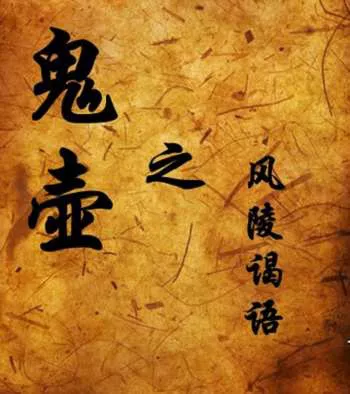 鬼壶
之
风陵谒语